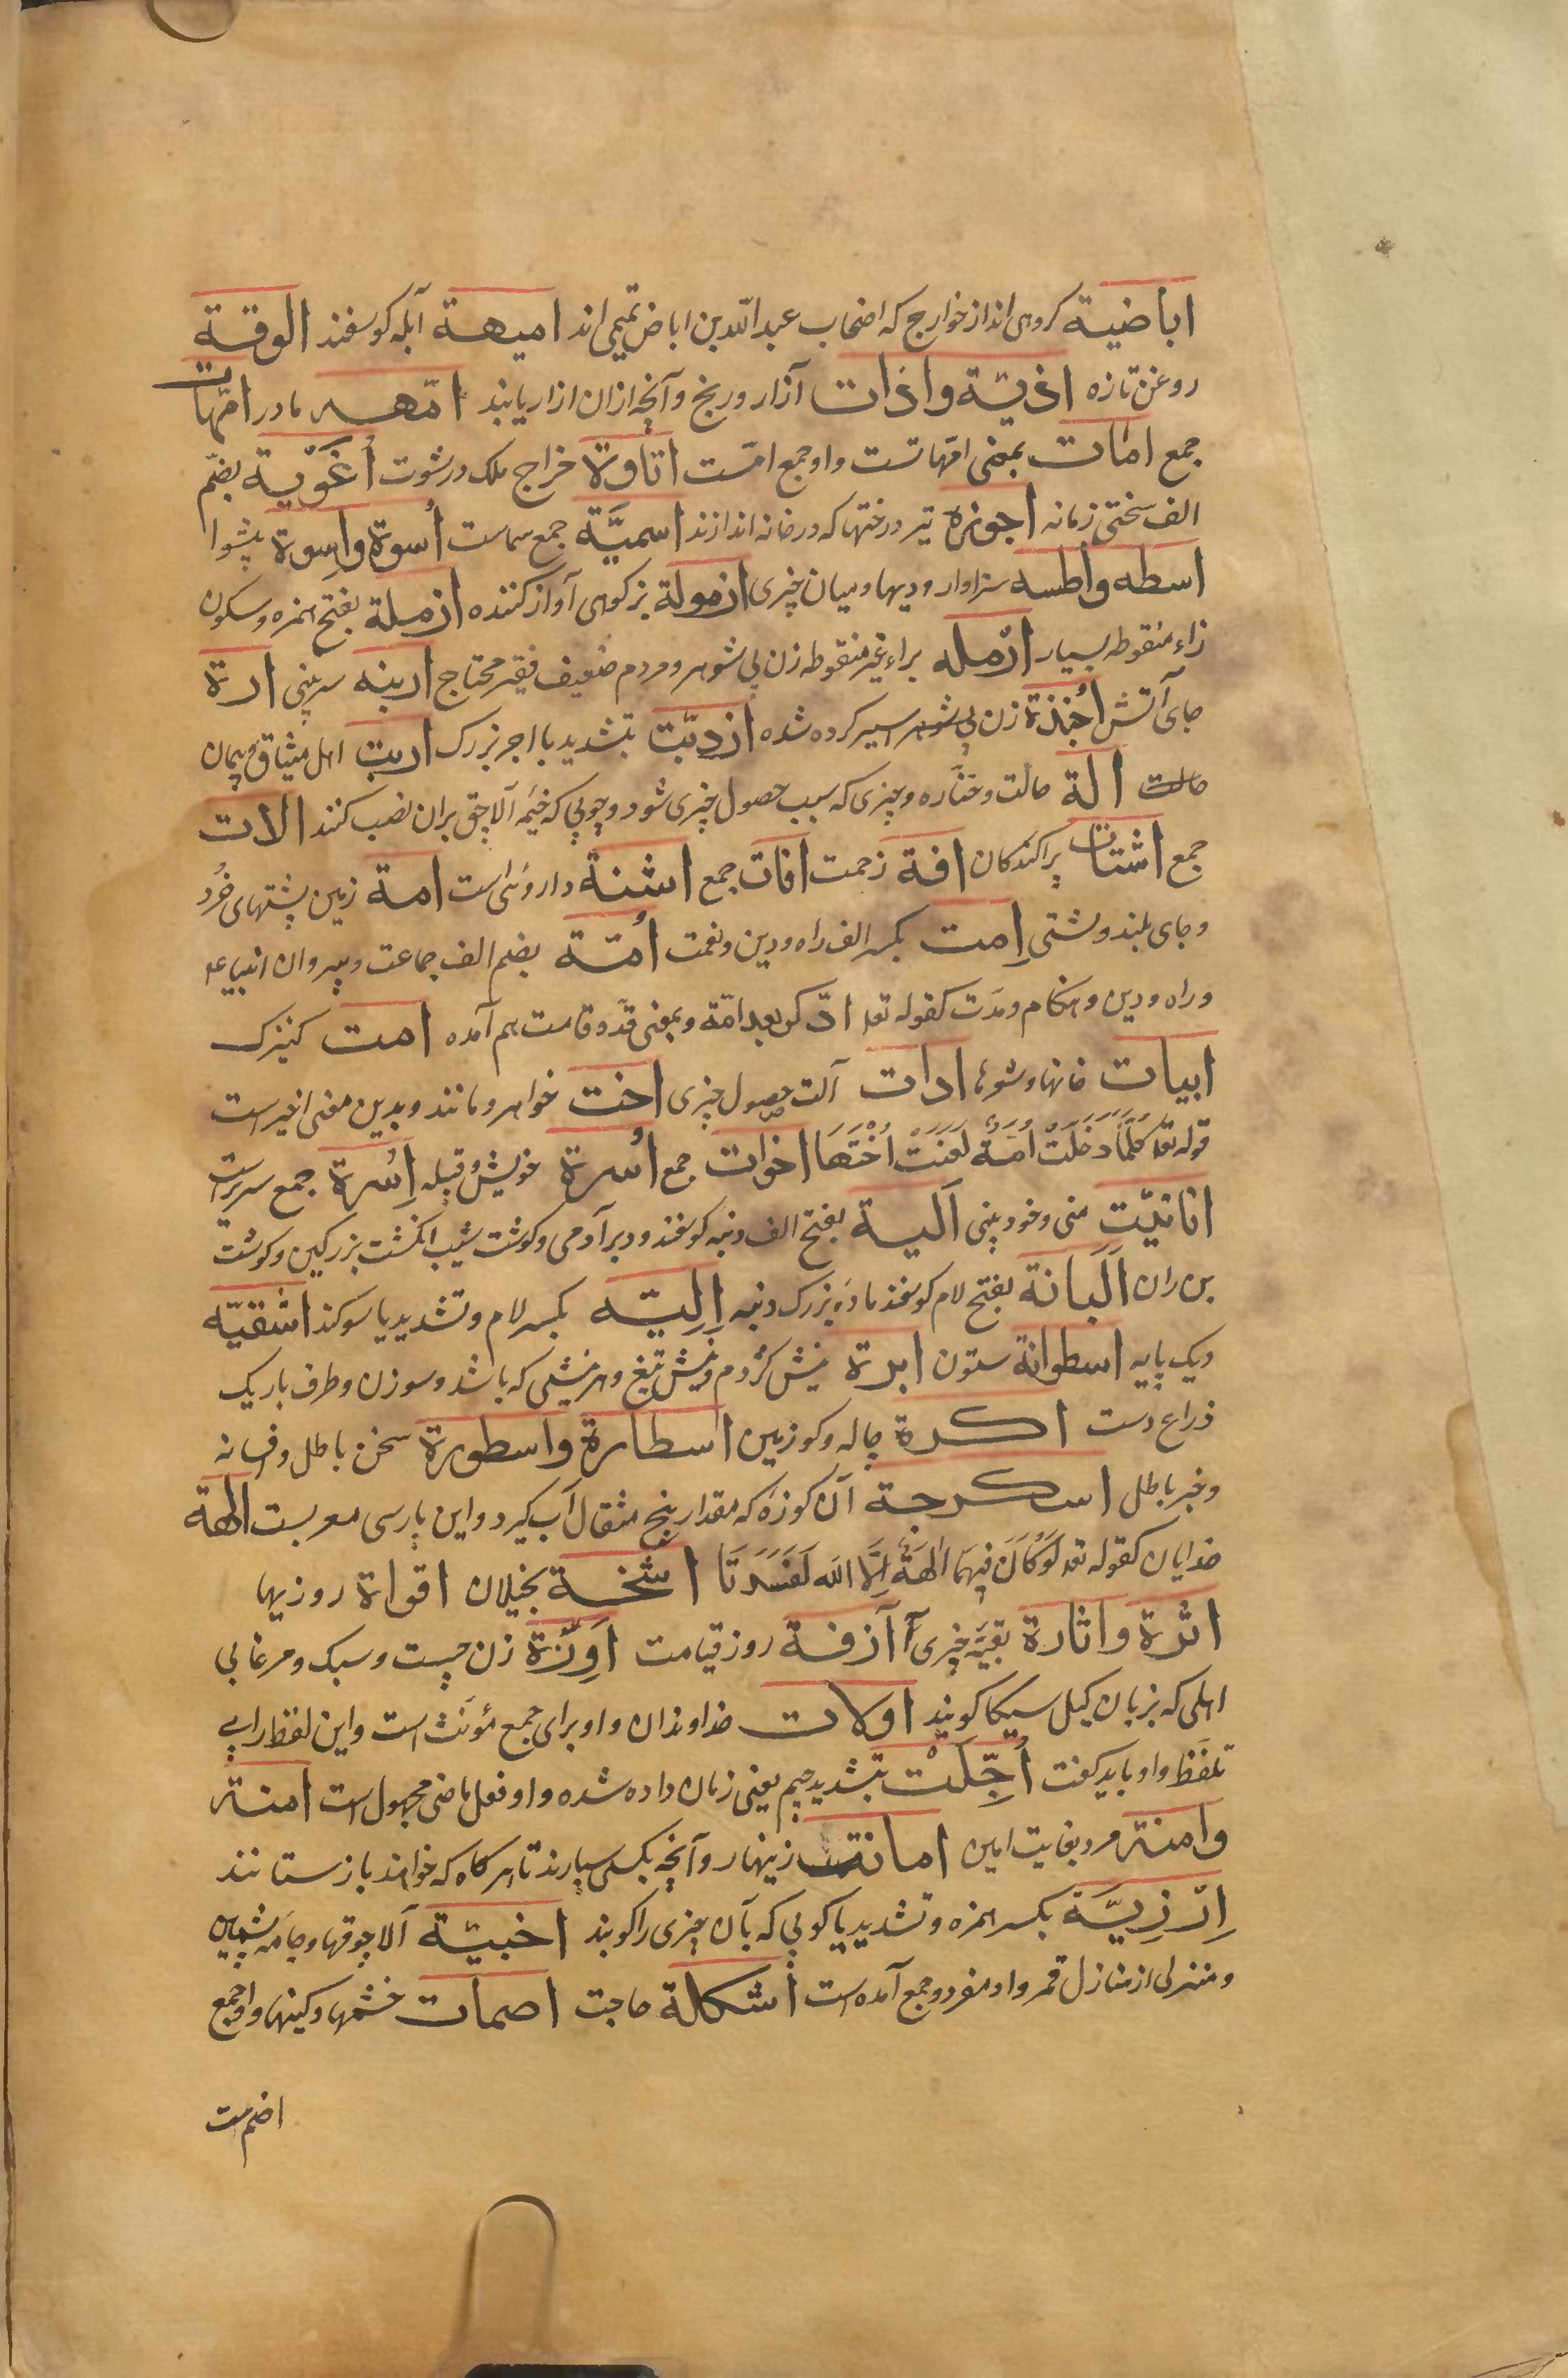 اباضیة کروهی اند از خوارج که اصحاب عبد الله بن اباض تمیمی اند امیهة آبله کوسفند الوقة
روغن تازه اذیّة واذات آزار ورنج وآنچه ازان ازار یابند امّهه مادر امّهات
جمع امات بمعنی امّهاتست واو جمع امّست اتاوة خراج ملک ورشوت اُغَوّیة بضمّ
الف سختی زمانه اجوزه تیر درختها که درخانه اندازند اسمیَّة جمع سماست اُسوة واِسوة پیشوا
اسطه واطسه سزاوار ودیها ومیان چیزی ازمولة بز کوهی آواز کننده ازملة بفتح همزه وسکون
زاء منقوطه بسیار ارمله براء غیر منقوطه زن بی شوهر ومردم ضعیف فقیر محتاج ارنبه سر بینی ارة
جای آتش اُخیذة زن بی شوهر اسیر کرده شده ازدبّت بتشدید با اجر بزرک اربت اهل میثاق وپیمان
حالت الة حالت وجنازه وچیزی که سبب حصول چیزی شود وچوبی که خیمه آلاچق بران نصب کنند الات
جمع اشتات پراکندکان افة زحمت افات جمع اشنة داروئی است امة زمین پشتهای خُرد
وجای بلند وپشتی اِمت بکسر الف راه ودین ونعمت اُمّة بضم الف جماعت وپیروان انبیاء ع
وراه ودین وهنکام ومدّت کقوله تع‍ وادّکر بعد امّة وبمعنی قدّ وقامت هم آمده امت کنیزک
ابیات خانها وشعرها ادات آلت حصول چیزی اخت خواهر ومانند وبدین معنی اخیر است
قوله تع‍ کُلَّمَا دَخَلَتْ اُمَّةٌ لَعَنَتْ اُخْتَهَا اخوات جمع اُسرة خویش وقبیله اِسُرة جمع سریر است
انانیّت منی وخودبینی اَلیة بفتح الف دنبه کوسفند ودبر آدمی وکوشت شیب انکشت بزرکین وکوشت
بن ران اَلَیانة بفتح لام کوسفند مادهٔ بزرک دنبه اِلِیّه بکسر لام وتشدید یا سوکند اثفیّه
دیک پایه اسطوانة ستون ابرة نیش کژدم ونیش تیغ وهر نیشی که باشد وسوزن وطرف باریک
ذراع دست اکرة چاله وکو زمین اسطارة واسطورة سخن باطل وافسانه
وخبر باطل اسکرجة آن کوزهٔ که مقدار پنج مثقال آب کیرد واین پارسی معربست الهة
خدایان کقوله تع‍ لَوْ کَانَ فِیهِمَا الِهَةٌ اِلَّا الله لَفَسَدَتَا اشحة بخیلان اقواة روزیها
اثرة واثارة بقیّهٔ چیزی آزفة روز قیامت اَوِزّة زن چست وسبک ومرغابی
اهلی که بزبان کیل سیکا کویند اولات خداوندان واو برای جمع مؤنث است واین لفظ را بی
تلفّظ واو باید کفت اُجِّلَتْ بتشدید جیم یعنی زمان داده شده واو فعل ماضی مجهول است امنة
وامنة مرد بغایت امین امانة زینهار وآنچه بکسی سپارند تا هر کاه که خواهند باز ستانند
اِرْزِیَّة بکسر همزه وتشدید یا کوبی که بآن چیزی را کوبند اخبیّة آلاچوقها وجامه پشمین
ومنزلی از منازل قمر واو مفرد وجمع آمده است اشکلة حاجت اضمات خشمها وکینها واو جمع
اضم است